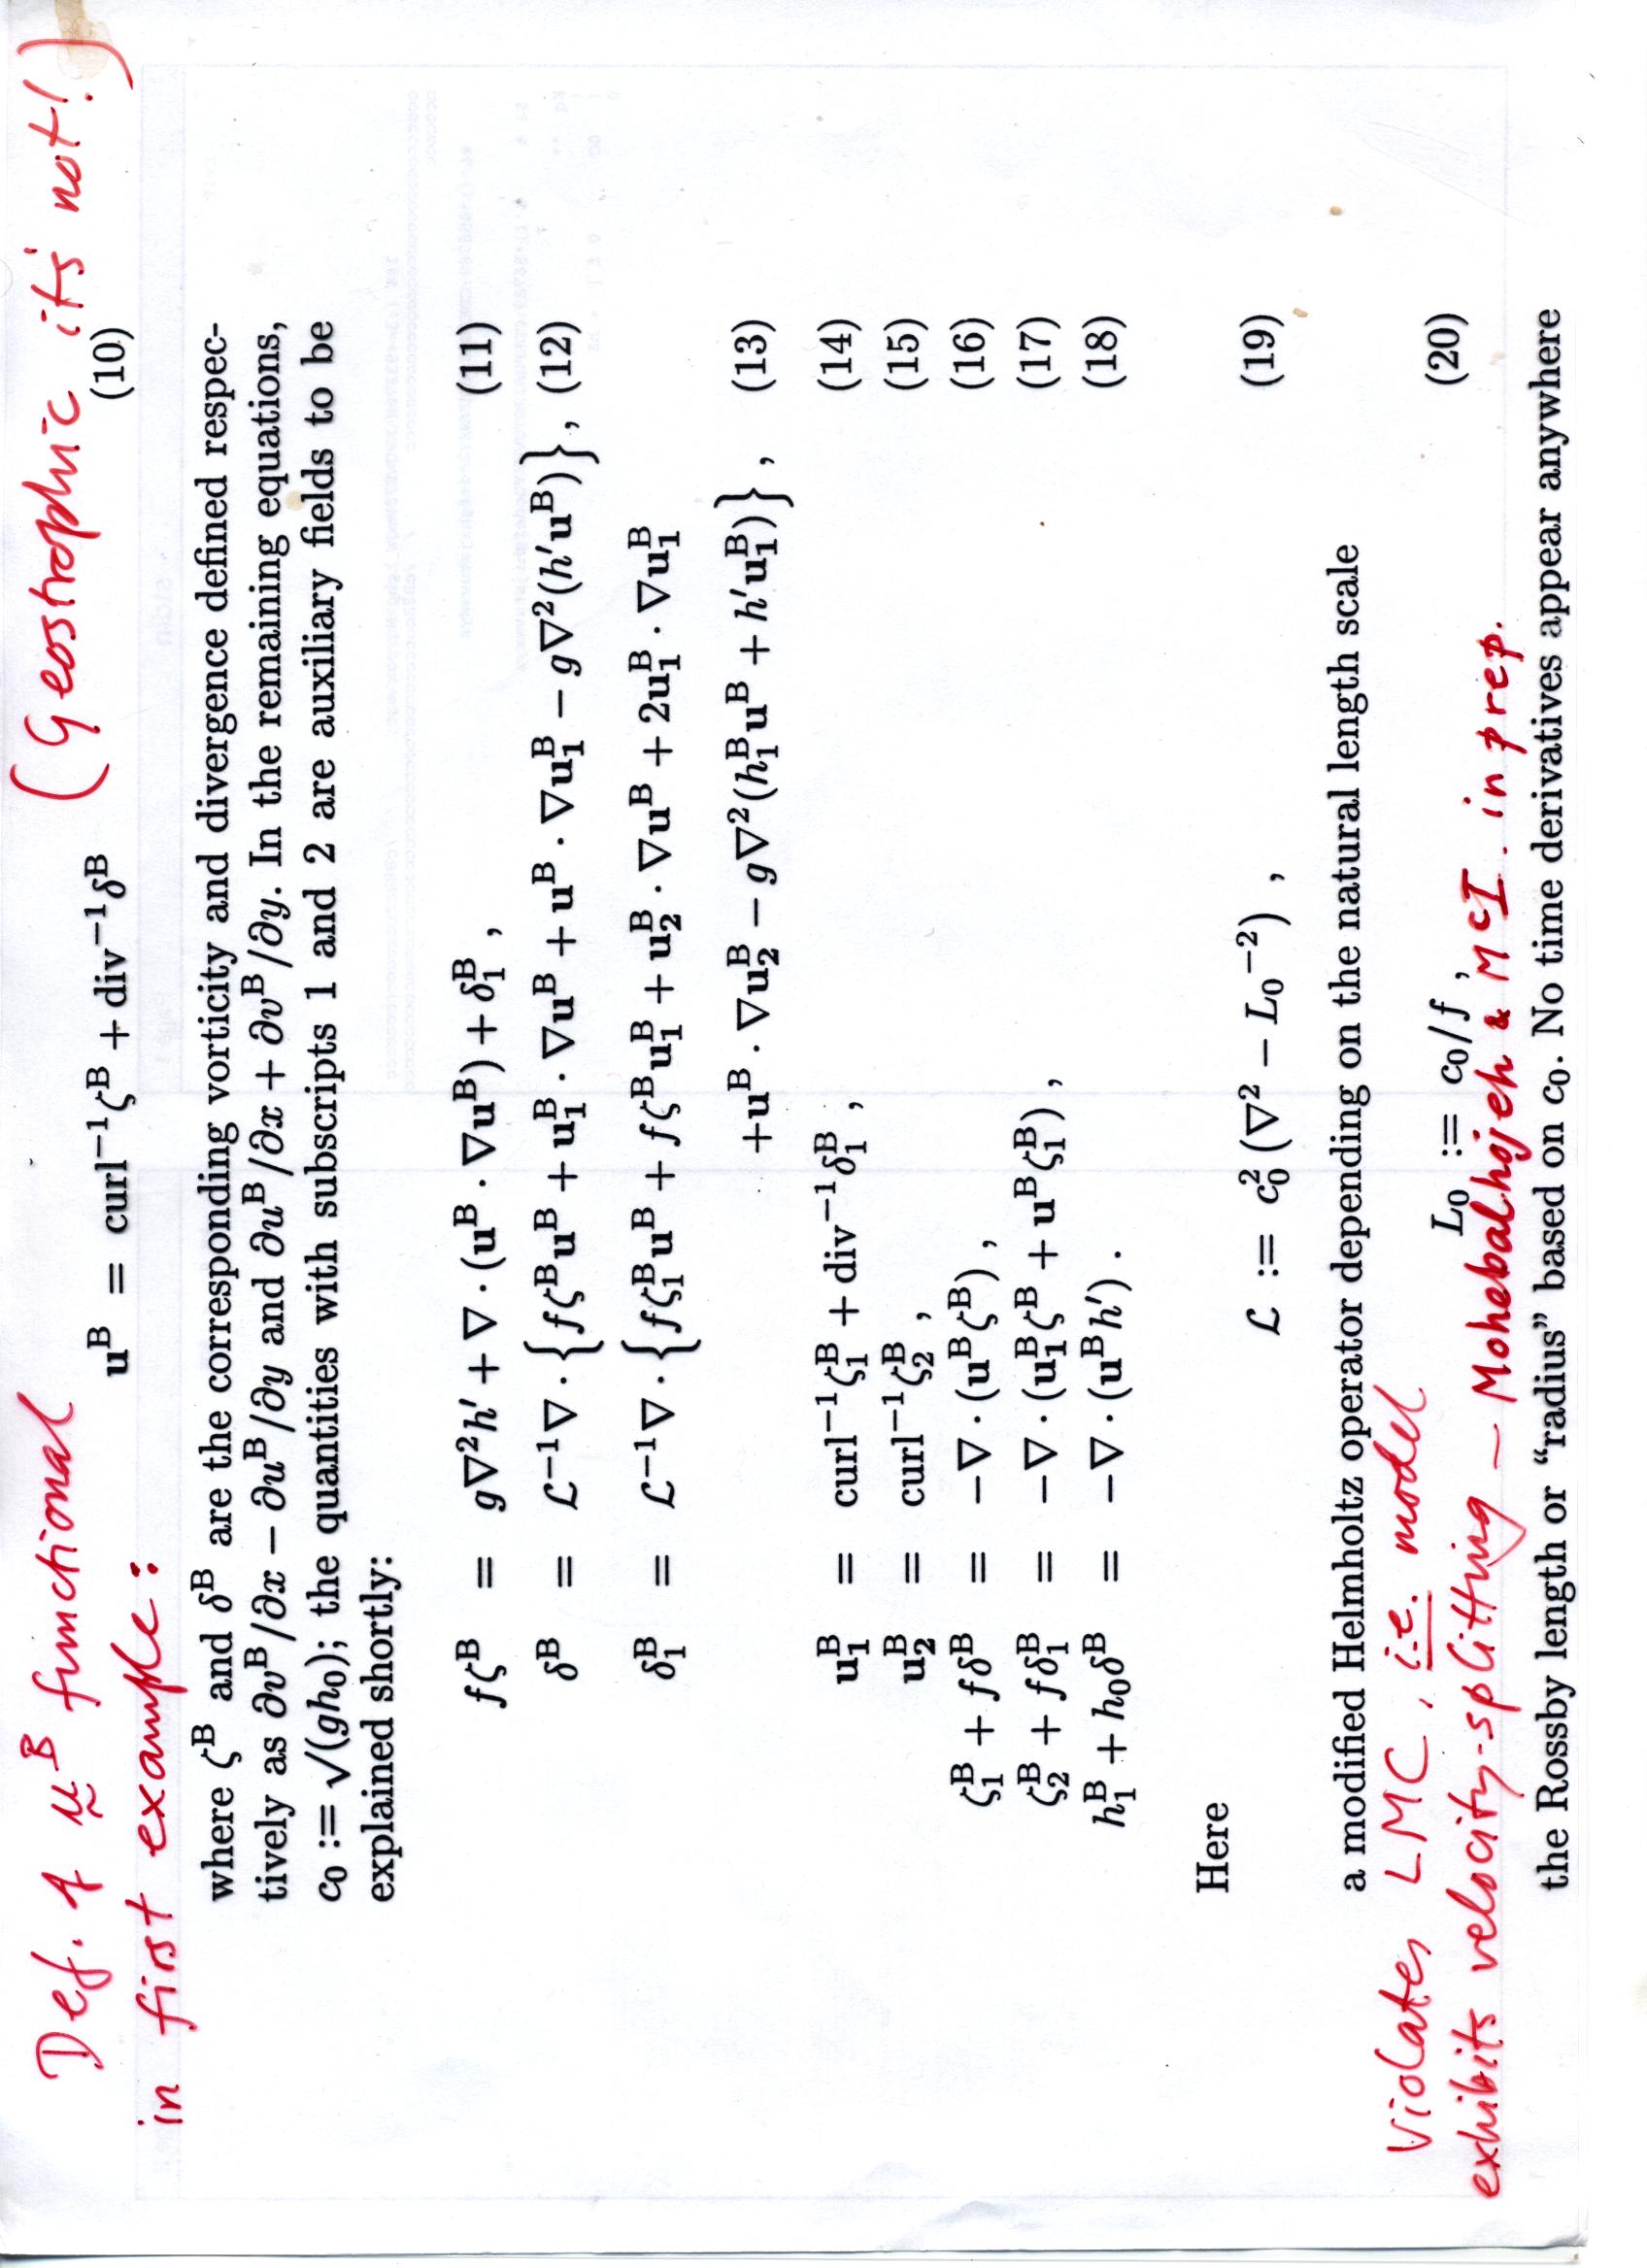 Def. of u^B functional (Geostrophic it's not!)
in first example:
u^B = curl⁻¹ζ^B + div⁻¹δ^B (10)
where ζ^B and δ^B are the corresponding vorticity and divergence defined respec-
tively as ∂v^B/∂x − ∂u^B/∂y and ∂u^B/∂x + ∂v^B/∂y. In the remaining equations,
c₀ := √(gh₀); the quantities with subscripts 1 and 2 are auxiliary fields to be
explained shortly:
fζ^B = g∇²h′ + ∇ · (u^B · ∇u^B) + δ₁^B , (11)
δ^B = ℒ⁻¹∇ · {fζ^B u^B + u₁^B · ∇u^B + u^B · ∇u₁^B − g∇²(h′u^B)} , (12)
δ₁^B = ℒ⁻¹∇ · {fζ₁^B u^B + fζ^B u₁^B + u₂^B · ∇u^B + 2u₁^B · ∇u₁^B
+u^B · ∇u₂^B − g∇²(h₁^B u^B + h′u₁^B)} , (13)
u₁^B = curl⁻¹ζ₁^B + div⁻¹δ₁^B , (14)
u₂^B = curl⁻¹ζ₂^B , (15)
ζ₁^B + fδ^B = −∇ · (u^B ζ^B) , (16)
ζ₂^B + fδ₁^B = −∇ · (u₁^B ζ^B + u^B ζ₁^B) , (17)
h₁^B + h₀δ^B = −∇ · (u^B h′) . (18)
Here
ℒ := c₀² (∇² − L₀⁻²) , (19)
a modified Helmholtz operator depending on the natural length scale
Violates LMC, i.e. model
L₀ := c₀/f , (20)
exhibits velocity-splitting — Mohebalhojeh & McI. in prep.
the Rossby length or “radius” based on c₀. No time derivatives appear anywhere